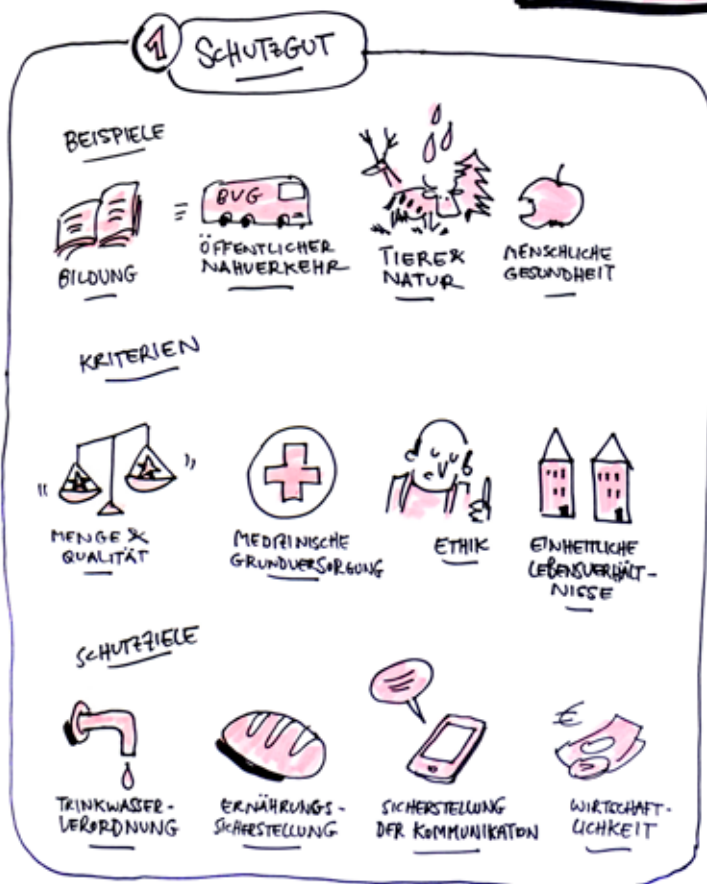 1 SCHUTZGUT
BEISPIELE
BVG
BILDUNG
ÖFFENTLICHER
NAHVERKEHR
TIERE &
NATUR
MENSCHLICHE
GESUNDHEIT
KRITERIEN
MENGE &
QUALITÄT
MEDIZINISCHE
GRUNDVERSORGUNG
ETHIK
EINHEITLICHE
LEBENSVERHÄLT-
NISSE
SCHUTZZIELE
TRINKWASSER-
VERORDNUNG
ERNÄHRUNGS-
SICHERSTELLUNG
SICHERSTELLUNG
DER KOMMUNIKATON
€
WIRTSCHAFT-
LICHKEIT